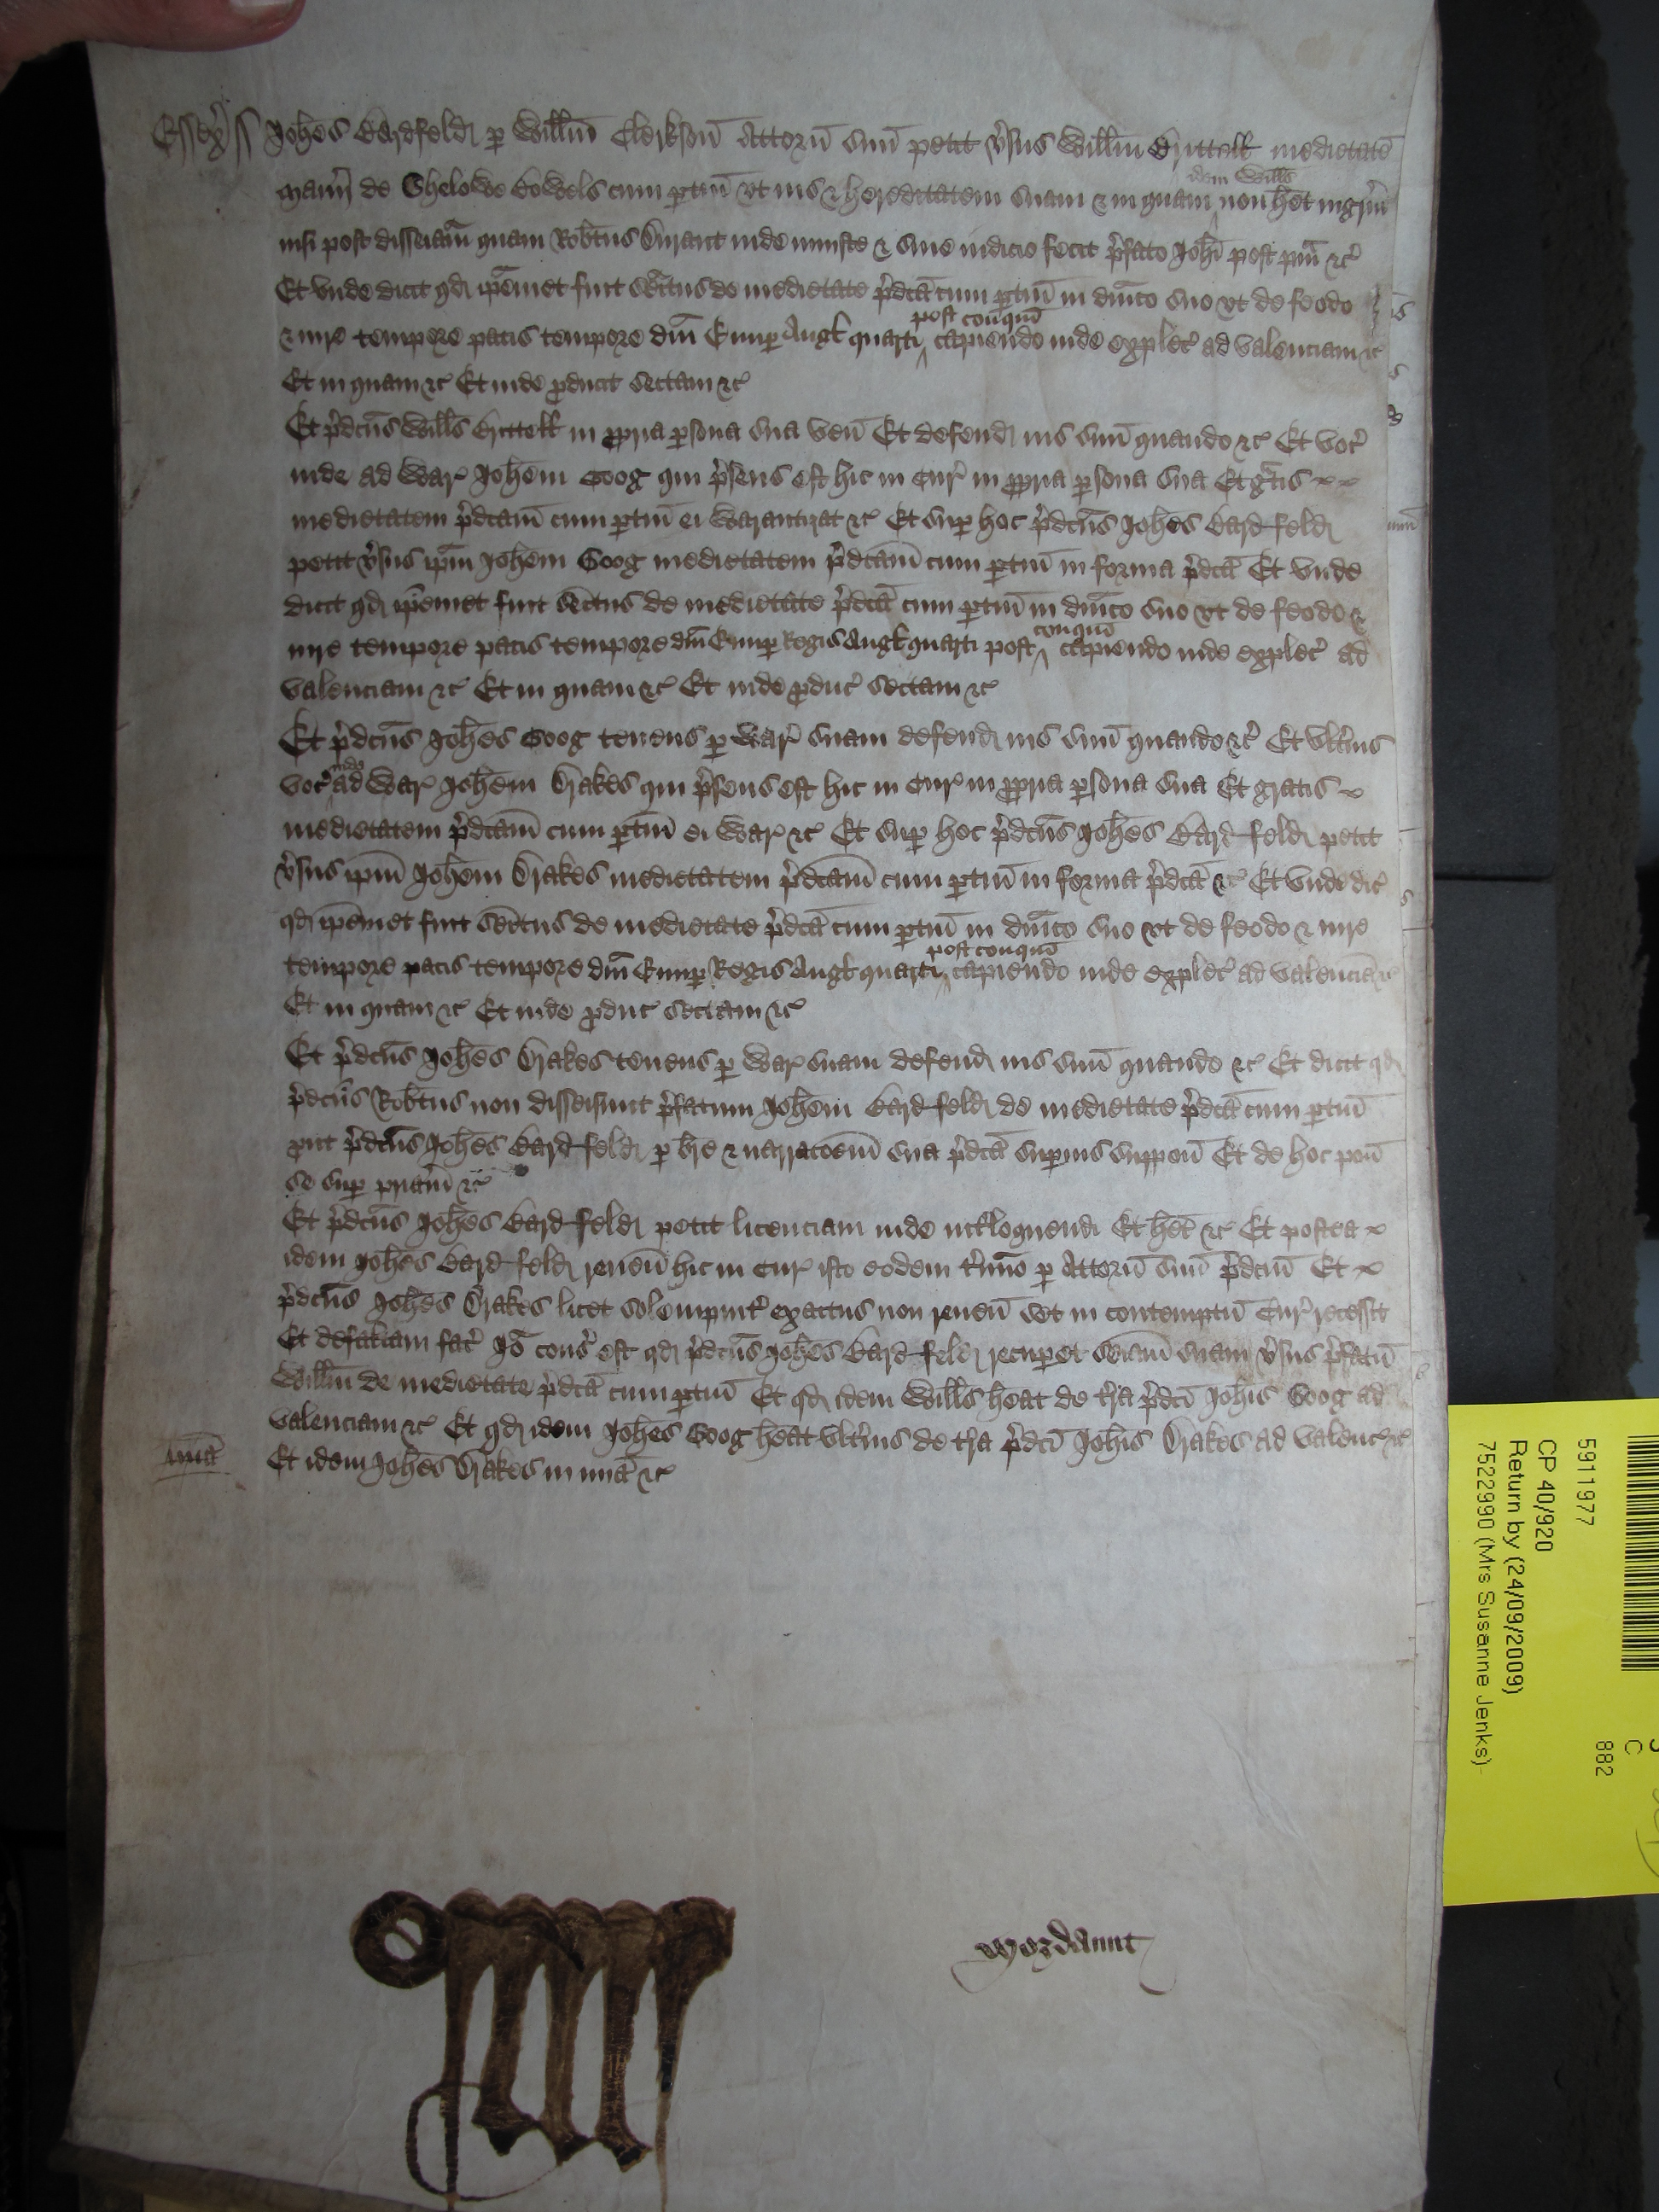 Essex ss Joħes Bardfeld p Wiłłm Clerkson Attorn suu petit vsus Wiłłm medietate
maner de Shelowe Bowels cum ptin vt jus & hereditatem suam & in quam idem Wills non het ingrm
nisi post disseiam quam Robtus Durant inde iniuste & sine iudicio fecit pfato Johi post pm &c
Et vnde dicit qd ipemet fuit seitus de medietate pdcta cum ptin in dnico suo vt de feodo
& iure tempore pacis tempore dni E nup Angł quarti post conqu capiendo inde explec ad valenciam &c
Et in quam &c Et inde pducit sectam &c
Et pdcus Wills in ppria psona sua ven Et defend ius suu quando &c Et voc
inde ad War Johem Goog qui psens est hic in Cur in ppria psona sua Et gratis
medietatem pdcam cum ptin ei Warantizat &c Et sup hoc pdcus Johes Bardfeld
petit vsus ipm Johem Goog medietatem pdcam cum ptin in forma pdca Et vnde
dicit qd ipemet fuit seitus de medietate pdca cum ptin in dnico suo vt de feodo &
iure tempore pacis tempore dni E nup Regis Angł quarti post conqu capiendo inde explec ad
valenciam &c Et in quam &c Et inde pduc sectam &c
Et pdcus Johes Goog tenens p War suam defend ius suu quando &c Et vltius
voc inde ad War Johem Drakes qui psens est hic in Cur in ppria psona sua Et gratis
medietatem pdcam cum ptin ei War &c Et sup hoc pdcus Johes Bardfeld petit
vsus ipm Johem Drakes medietatem pdcam cum ptin in forma pdca &c Et vnde dic
qd ipemet fuit seitus de medietate pdca cum ptin in dnico suo vt de feodo & iure
tempore pacis tempore dni E nup Regis Angł quarti post conqu capiendo inde explec ad valencia &c
Et in quam &c Et inde pduc sectam &c
Et pdcus Johes Drakes tenens p War suam defend ius suu quando &c Et dicit qd
pdcus Robtus non disseisiuit pfatum Johem Bardfeld de medietate pdca cum ptin
put pdcus Johes Bardfeld p bre & narracoem sua pdca supius suppon Et de hoc pon
se sup priam &c
Et pdcus Johes Bardfeld petit licenciam inde intłloquendi Et het &c Et postea
idem Johes Bardfeld reuen hic in Cur isto eodem tmino p Attorn suu pdcum Et
pdcus Johes Drakes licet solempnit exactus non reuen set in contemptu Cur recessit
Et defaltam fac Io cons est qd pdcus Johes Bardfeld recupet seiam suam vsus pfatu
Wiłłm de medietate pdca cum ptin Et qd idem Wills heat de tra pdci Johis Goog ad
valenciam &c Et qd idem Johes Goog heat vltius de tra pdci Johis Drakes ad valenc &c
mia Et idem Johes Drakes in mia &c
Mordaunt
5911977
CP 40/920
Return by (24/09/2009)
7522990 (Mrs Susanne Jenks)
C
882